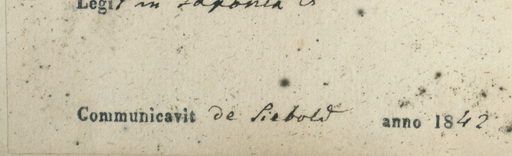 Legit in Japonia
Communicavit de Siebold anno 1842